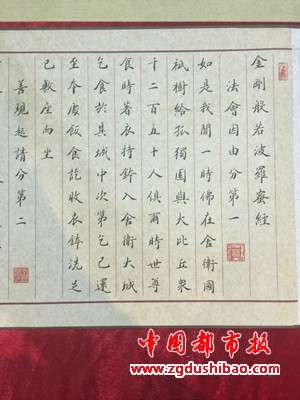 金剛般若波羅蜜經
法會因由分第一
如是我聞一時佛在舍衛國
祇樹給孤獨園與大比丘衆
千二百五十人俱爾時世尊
食時著衣持鉢入舍衛大城
乞食於其城中次第乞已還
至本處飯食訖收衣鉢洗足
已敷座而坐
善現起請分第二
中国都市报
www.zgdushibao.com